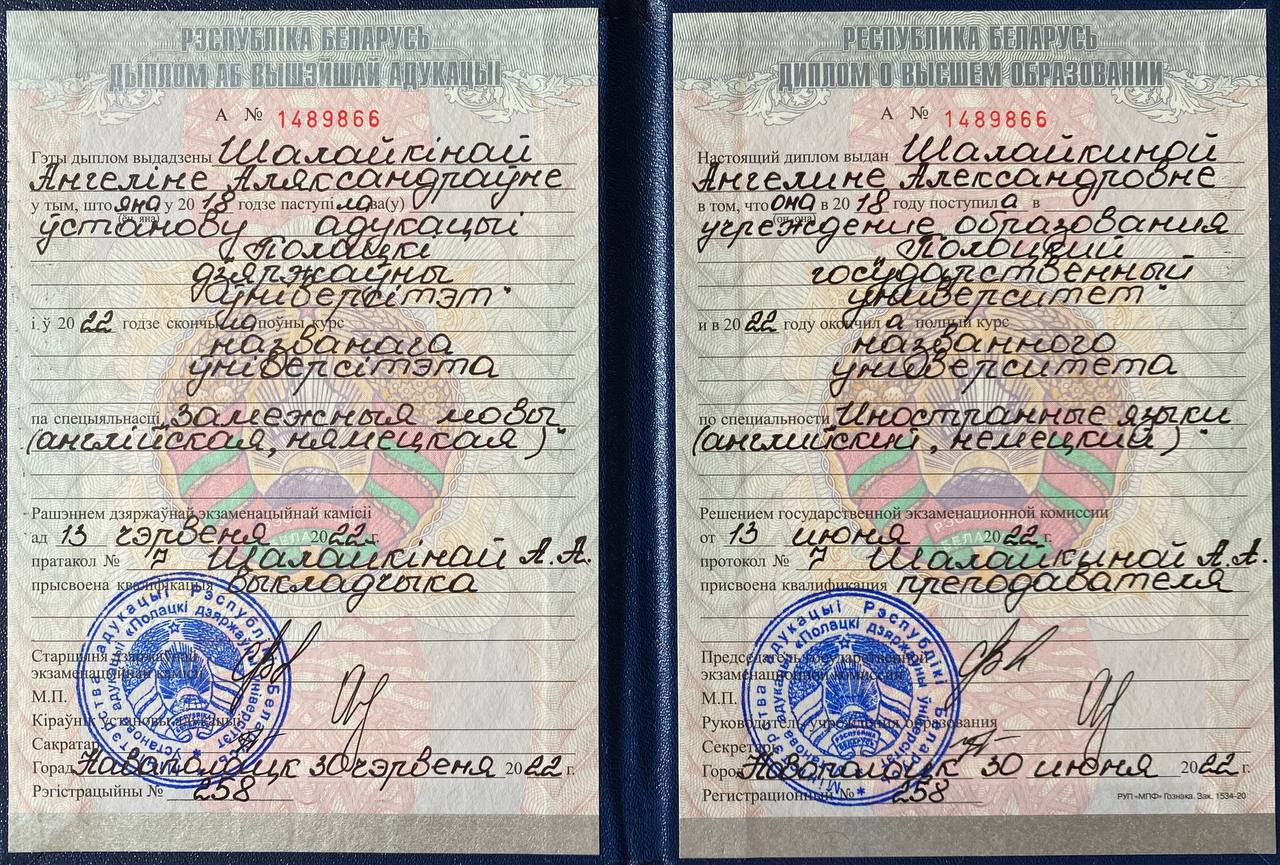 РЭСПУБЛІКА БЕЛАРУСЬ
ДЫПЛОМ АБ ВЫШЭЙШАЙ АДУКАЦЫІ
А № 1489866
Гэты дыплом выдадзены Шалайкінай
Ангеліне Аляксандраўне
у тым, што яна у 2018 годзе паступіла ва(у)
(ён, яна)
ўстанову адукацыі
"Полацкі
дзяржаўны
ўніверсітэт"
і ў 2022 годзе скончыла поўны курс
названага
ўніверсітэта
па спецыяльнасці "Замежныя мовы
(англійская, нямецкая)"
Рашэннем дзяржаўнай экзаменацыйнай камісіі
ад 13 чэрвеня 2022 г.
пратакол № 7 Шалайкінай А.А.
прысвоена кваліфікацыя выкладчыка
Старшыня дзяржаўнай
экзаменацыйнай камісіі
М.П.
Кіраўнік установы адукацыі
Сакратар
Горад Наваполацк 30 чэрвеня 2022 г.
Рэгістрацыйны № 258
РЕСПУБЛИКА БЕЛАРУСЬ
ДИПЛОМ О ВЫСШЕМ ОБРАЗОВАНИИ
А № 1489866
Настоящий диплом выдан Шалайкиной
Ангелине Александровне
в том, что она в 2018 году поступила в
(он, она)
учреждение образования
"Полоцкий
государственный
университет"
и в 2022 году окончила полный курс
названного
университета
по специальности "Иностранные языки
(английский, немецкий)"
Решением государственной экзаменационной комиссии
от 13 июня 2022 г.
протокол № 7 Шалайкиной А.А.
присвоена квалификация преподавателя
Председатель государственной
экзаменационной комиссии
М.П.
Руководитель учреждения образования
Секретарь
Город Новополоцк 30 июня 2022 г.
Регистрационный № 258
РУП «МПФ» Гознака. Зак. 1534-20